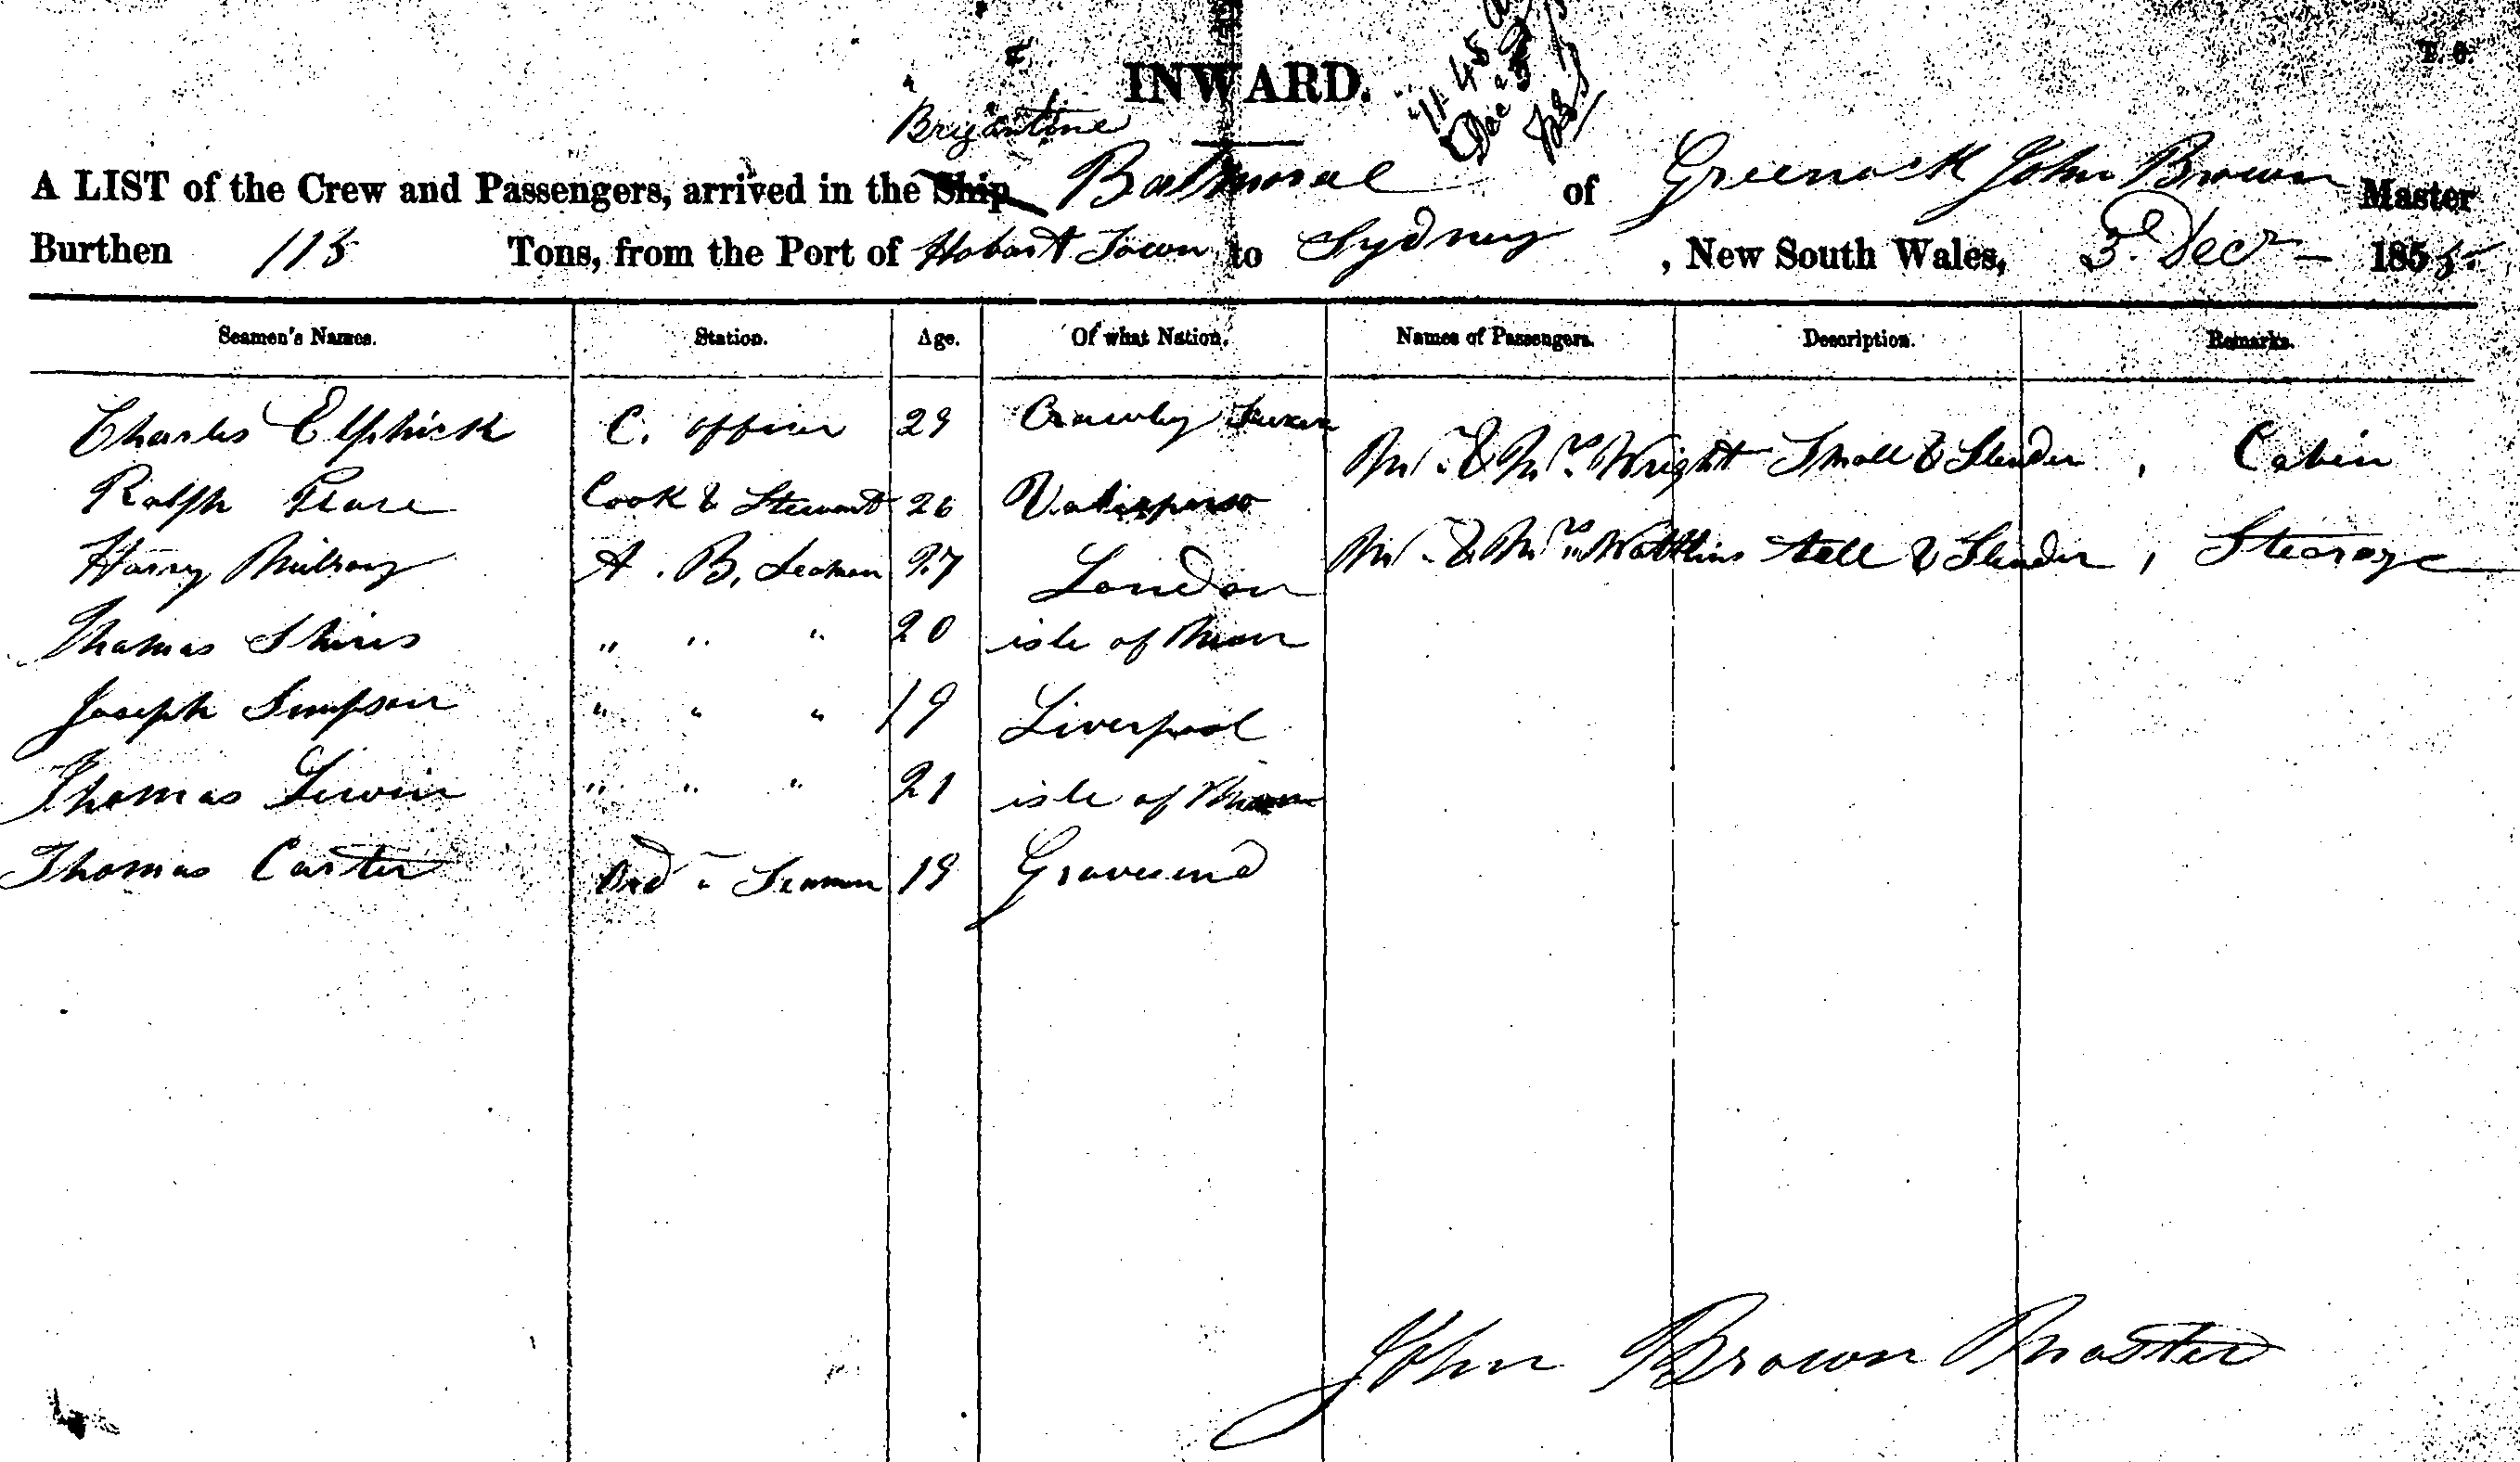 T. O.
INWARD.
11-45
Brigantine
A LIST of the Crew and Passengers, arrived in the Ship Balmoral of Greenock John Brown Master
Burthen 115 Tons, from the Port of Hobart Town to Sydney, New South Wales, 3d Decr 1855.
Seamen's Names. Station. Age. Of what Nation. Names of Passengers. Description. Remarks.
Charles Elphick C. officer 29 Crawley Sussex Mr. & Mrs. Wright Small & Slender, Cabin
Ralph Peare Cook & Steward 26 Valisparso Mr. & Mrs. Wattkins tall & Slender, Stearage
Harry A. B. Seaman 27 London
Thomas Shires " " " 20 isle of Man
Joseph Simpson " " " 19 Liverpool
Thomas " " " 21 isle of Man
Thomas Carter Ord " Seaman 19 Gravesend
John Brown Master